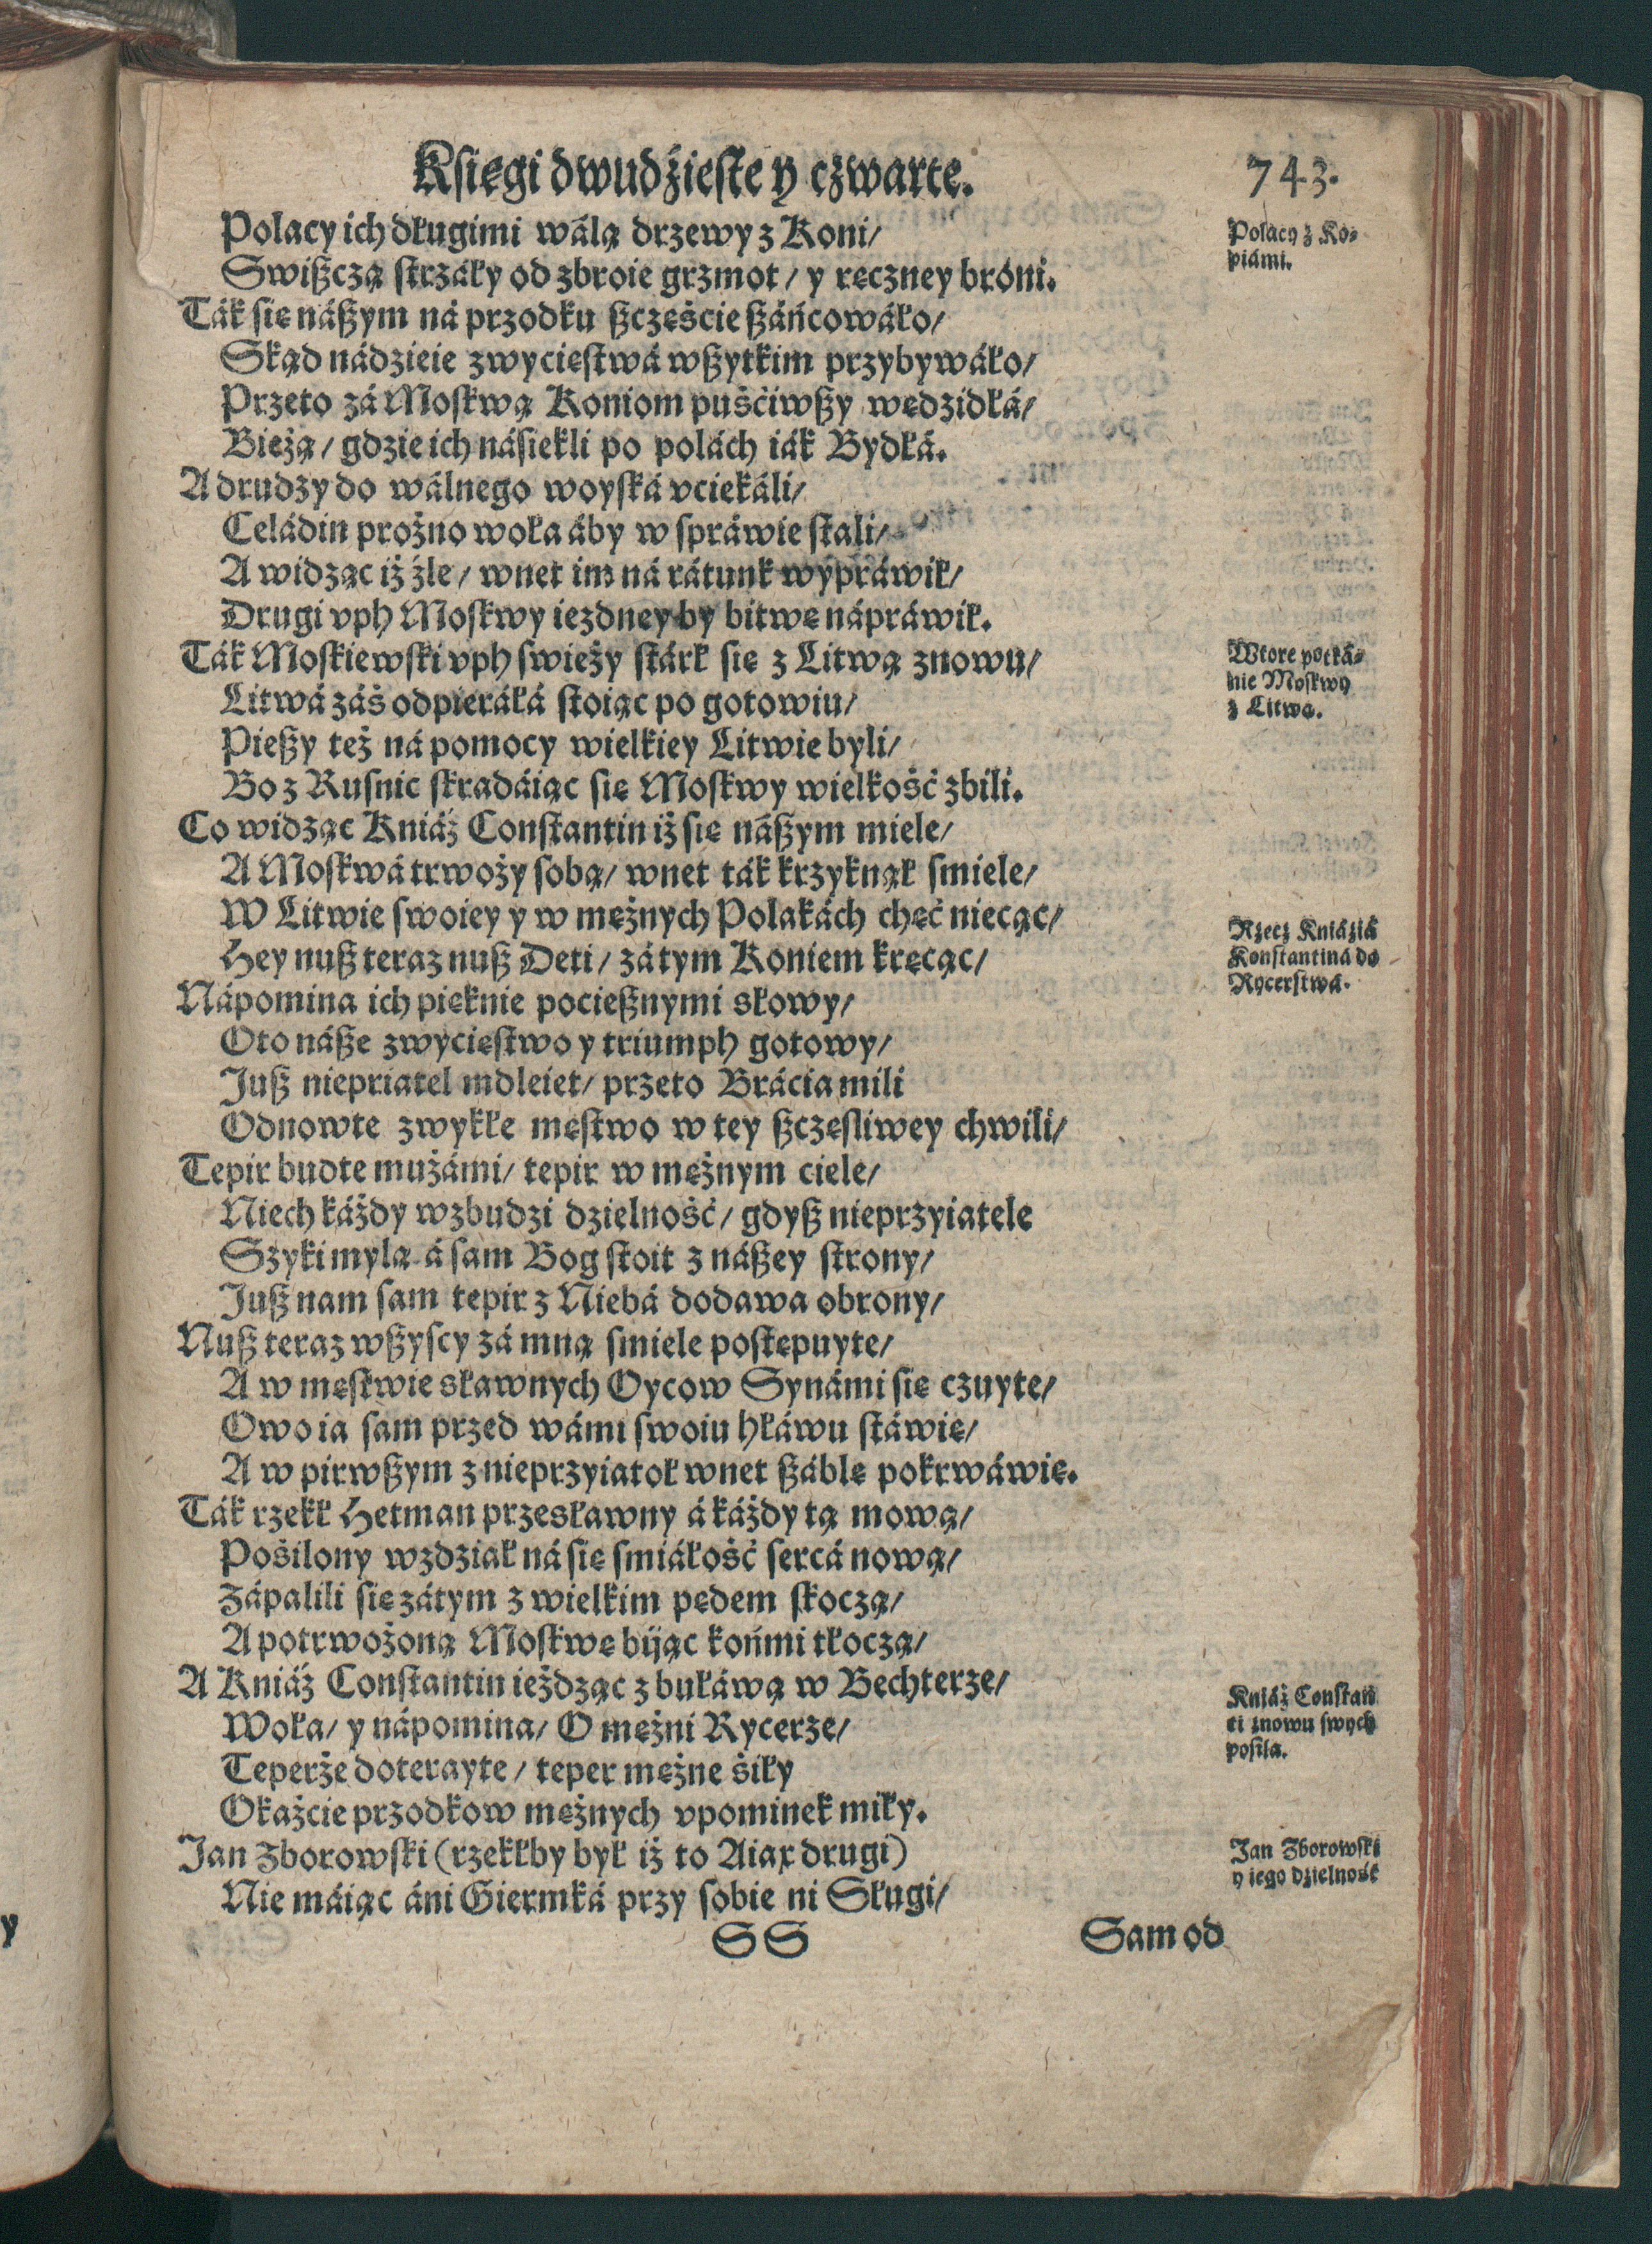 Kſięgi dwudźieſte y czwarte.
743.
Polacy ich długimi wálą drzewy z Koni/
Swißczą ſtrzáły od zbroie grzmot/ y ręczney bróni.
Ták ſię náßym ná przodku ßczęście ßáńcowáło/
Skąd nádzieie zwycięſtwá wßytkim przybywáło/
Przeto zá Moſkwą Koniom puśćiwßy wędzidłá/
Bieżą/ gdzie ich náſiekli po polách iák Bydłá.
A drudzy do wálnego woyſká vciekáli/
Celádin prożno woła áby w ſpráwie ſtali/
A widząc iż źle/ wnet im ná rátunk wypráwił/
Drugi vph Moſkwy iezdney by bitwę nápráwił.
Ták Moſkiewſki vph ſwieży ſtárł ſię z Litwą znowu/
Litwá záś odpieráłá ſtoiąc po gotowiu/
Pießy też ná pomocy wielkiey Litwie byli/
Bo z Ruſnic ſkradáiąc ſię Moſkwy wielkość zbili.
Co widząc Kniáź Conſtantin iż ſię náßym miele/
A Moſkwá trwoży ſobą/ wnet ták krzyknął ſmiele/
W Litwie ſwoiey y w mężnych Polakách chęć niecąc/
Hey nuß teraz nuß Deti/ zátym Koniem kręcąc/
Nápomina ich pięknie pocießnymi słowy/
Oto náße zwycięſtwo y triumph gotowy/
Juß niepriatel mdleiet/ przeto Brácia mili
Odnowte zwykłe męſtwo w tey ßczęſliwey chwili/
Tepir budte mużámi/ tepir w mężnym ciele/
Niech káżdy wzbudzi dzielność/ gdyß nieprzyiatele
Szyki mylą á ſam Bog ſtoit z náßey ſtrony/
Juß nam ſam tepir z Niebá dodawa obrony/
Nuß teraz wßyſcy zá mną ſmiele poſtępuyte/
A w męſtwie sławnych Oycow Synámi ſię czuyte/
Owo ia ſam przed wámi ſwoiu hłáwu ſtáwię/
A w pirwßym z nieprzyiatoł wnet ßáblę pokrwáwię.
Ták rzekł Hetman przesławny á káżdy tą mową/
Pośilony wzdział ná ſię ſmiáłość ſercá nową/
Zápalili ſię zátym z wielkim pędem ſkoczą/
A potrwożoną Moſkwę biiąc końmi tłoczą/
A Kniáź Conſtantin ieżdząc z bułáwą w Bechterze/
Woła/ y nápomina/ O mężni Rycerze/
Teperże doterayte/ teper mężne śiły
Okażcie przodkow mężnych vpominek miły.
Jan Zborowſki (rzekłby był iż to Aiax drugi)
Nie máiąc áni Giermká przy ſobie ni Sługi/
SS
Sam od
Polacy z Ko-
piámi.
Wtore potká-
nie Moſkwy
z Litwą.
Rzecz Kniáziá
Konſtantiná do
Rycerſtwá.
Kniáź Conſtan
ti znowu ſwych
poſila.
Jan Zborowſki
y iego dzielność
y